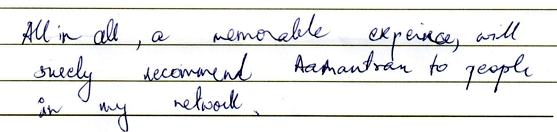 All in all, a memorable experince, will
surely recommend Aamantran to people
in my network.